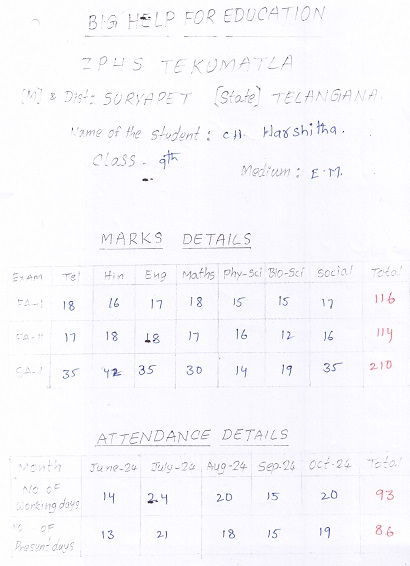 BIG HELP FOR EDUCATION
ZPHS TEKUMATLA
[M] & Dist: SURYAPET [State] TELANGANA.
Name of the Student: CH. Harshitha.
Class - 9th
Medium: E.M.
MARKS DETAILS
Exam Tel Hin Eng Maths Phy-Sci Bio-Sci Social Total
FA-I 18 16 17 18 15 15 17 116
FA-II 17 18 18 17 16 12 16 114
SA-I 35 42 35 30 14 19 35 210
ATTENDANCE DETAILS
Month June-24 July-24 Aug-24 Sep-24 Oct-24 Total
No of
Working days 14 24 20 15 20 93
No - OF
Present days 13 21 18 15 19 86